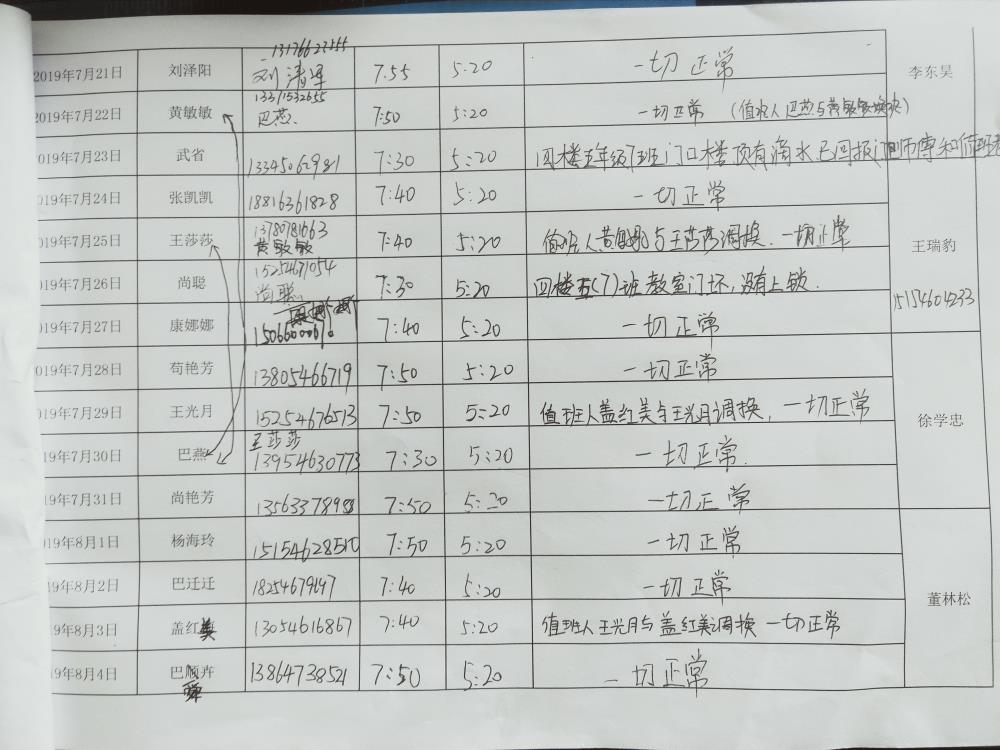 13176623255
2019年7月21日 刘泽阳 刘清军 7.55 5:20 一切正常 李东昊
13371532655
2019年7月22日 黄敏敏 巴燕 7:50 5:20 一切正常（值班人巴燕与黄敏敏换）
2019年7月23日 武省 13345062981 7:30 5:20 四楼五年级7班门口楼顶有滴水已回报
2019年7月24日 张凯凯 18816361828 7:40 5:20 一切正常
13780781663
2019年7月25日 王莎莎 黄敏敏 7:40 5:20 值班人黄敏敏与王莎莎调换.一切正常 王瑞豹
15254671054
2019年7月26日 尚聪 尚聪 7:30 5:20 四楼五(7)班教室门坏,没有上锁.
15154604233
康娜娜
2019年7月27日 康娜娜 7:40 5:20 一切正常
019年7月28日 苟艳芳 13805466719 7:50 5:20 一切正常
019年7月29日 王光月 15254676513 7:50 5:20 值班人盖红美与王光月调换，一切正常 徐学忠
王莎莎
19年7月30日 巴燕 13954630773 7:30 5:20 一切正常.
19年7月31日 尚艳芳 7:50 5:20 一切正常
19年8月1日 杨海玲 15154628510 7:50 5:20 一切正常
19年8月2日 巴迁迁 18254679197 7:40 5:20 一切正常 董林松
19年8月3日 盖红美 13054616867 7:40 5:20 值班人王光月与盖红美调换 一切正常
19年8月4日 巴顺卉 13864738521 7:50 5:20 一切正常